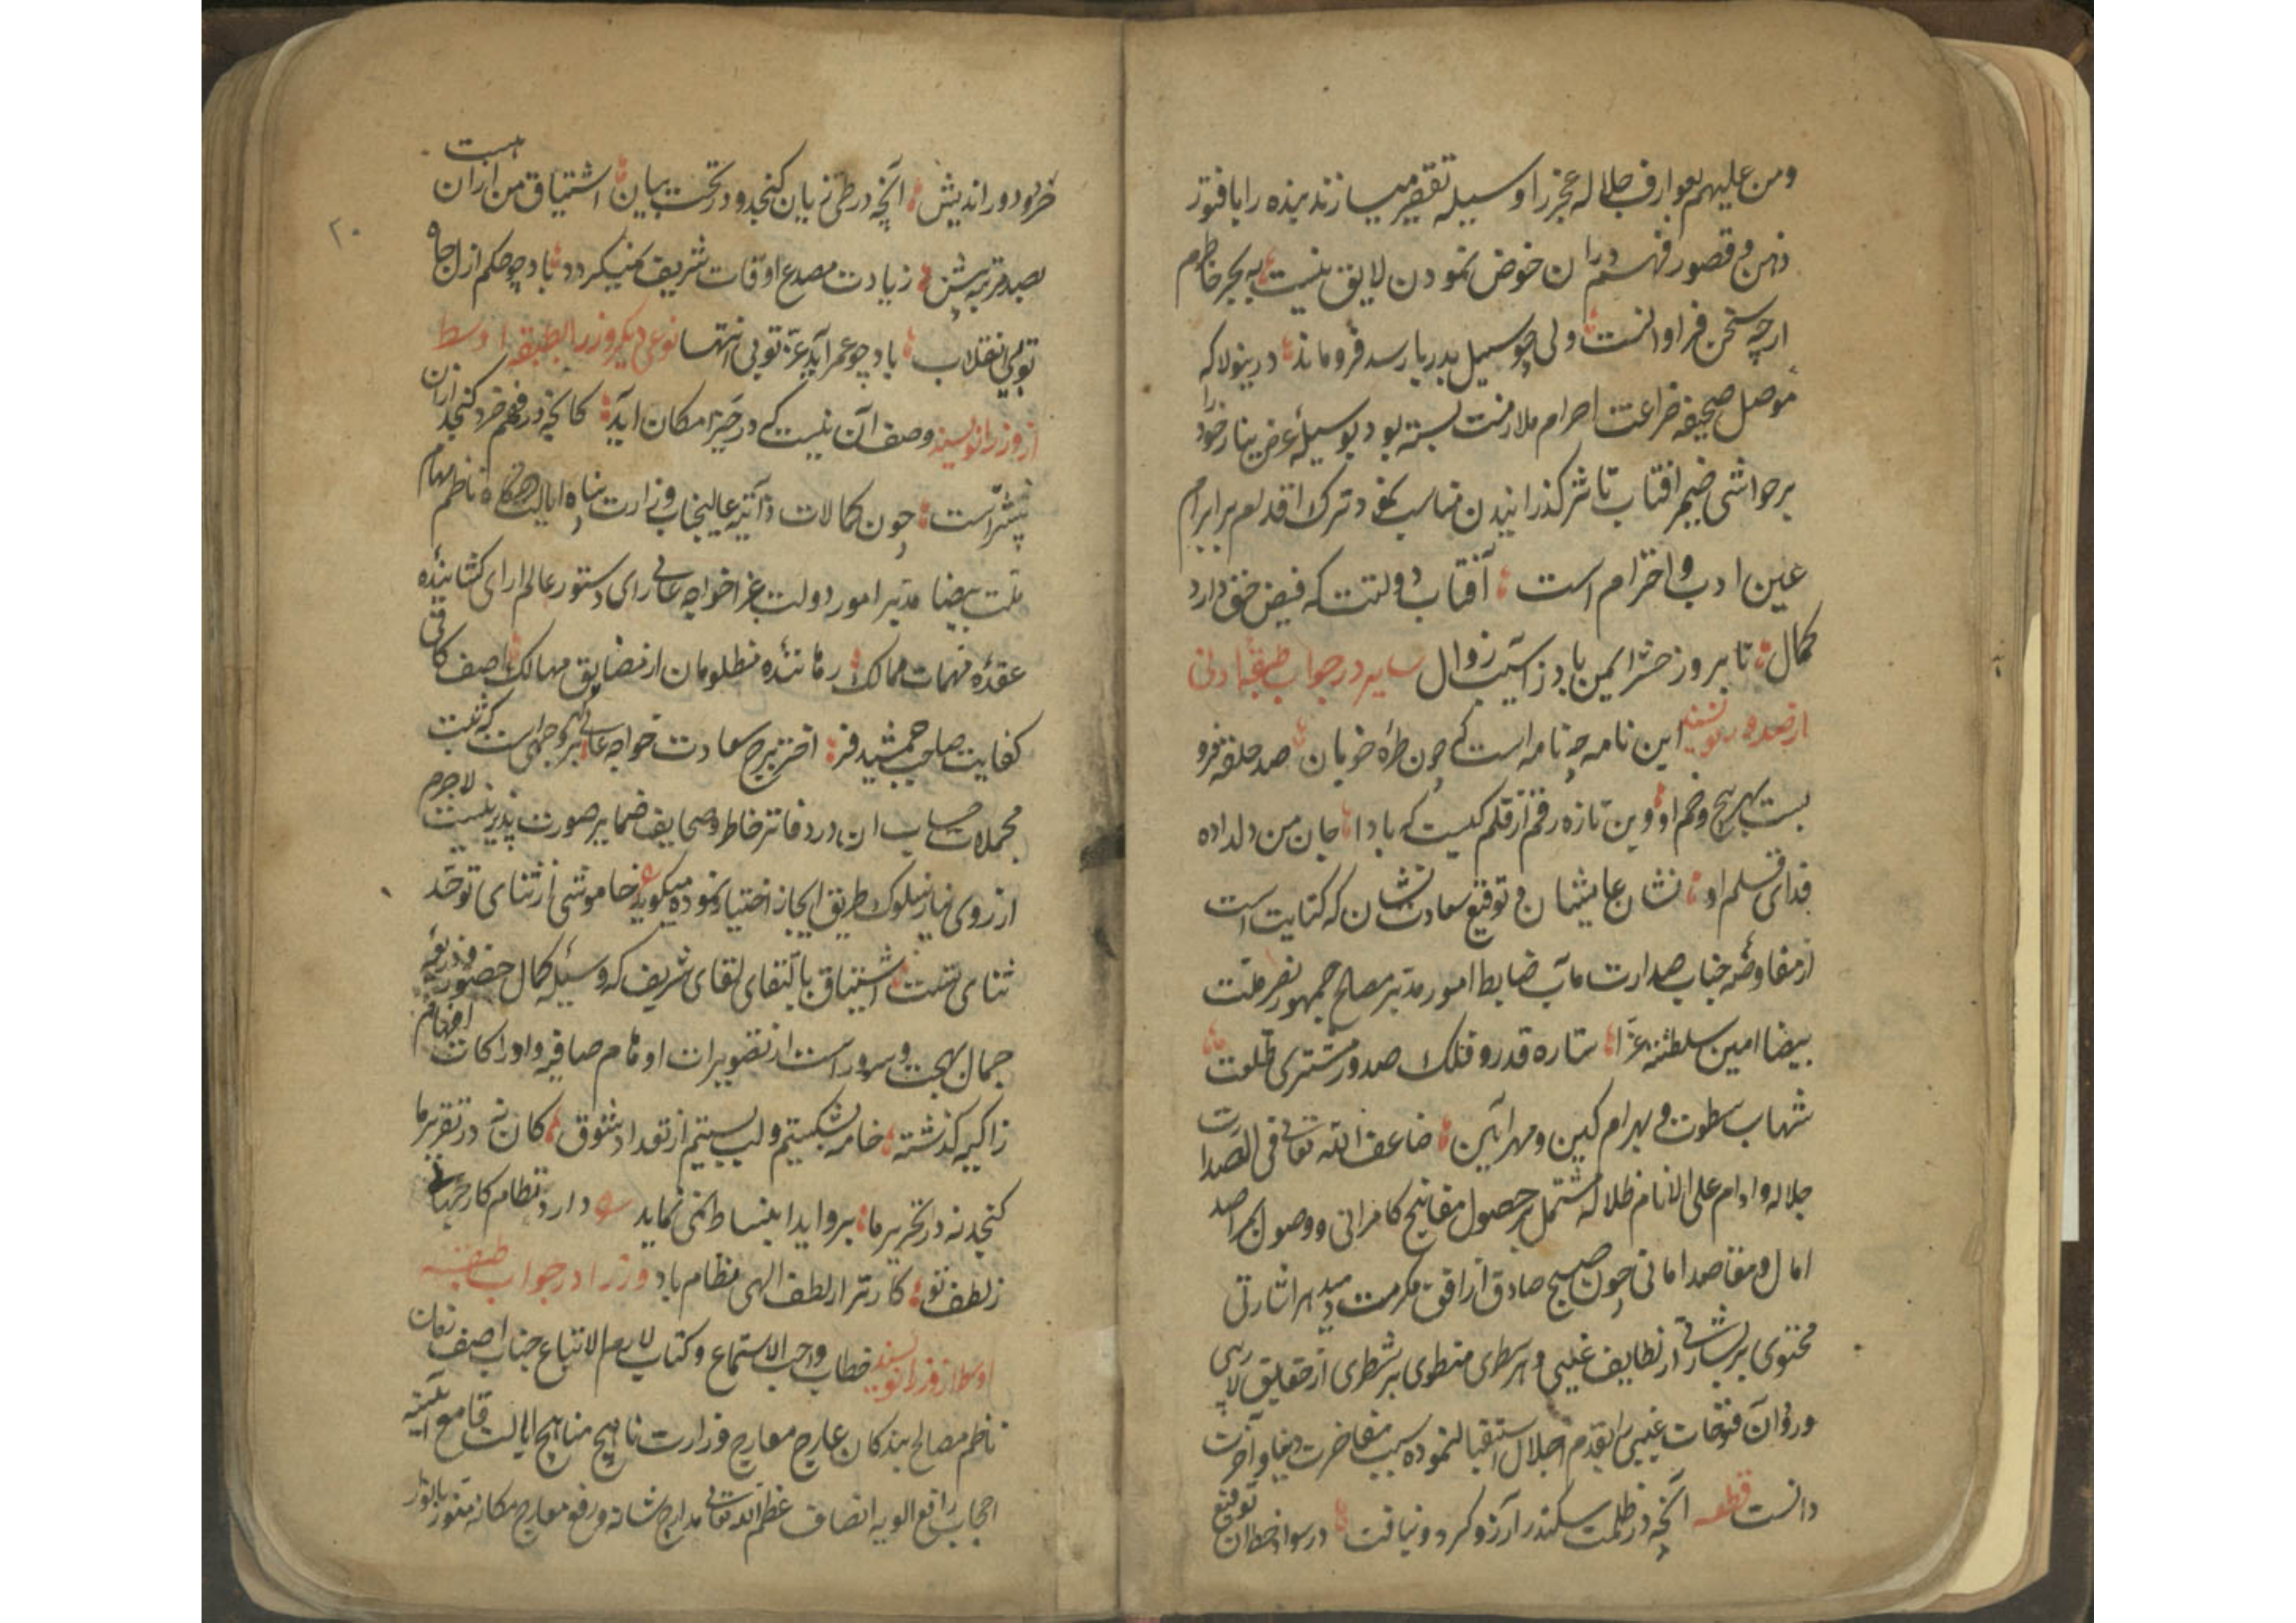 ومن علیهم بعوارف جلاله عجز را وسیله تقصیر میسازند بنده را با فتور
ذهن و قصور فهم دران خوض نمودن لایق نیست به بحر خاطرم
ارچه سخن فراوانست ولی چو سیل بدریا رسد فروماند درینولا که
موصل صحیفه ضراعت احرام ملازمت بسته بود بوسیلۀ عرض نیاز خود را
بر حواشی ضمیر افتاب تاثر گذرانیدن مناسب نمود ترک اقدام بر ابرام
عین ادب و احترام است آفتاب دولتت که فیض حق دارد
کمال تا بروز حشر ایمن باد ز آسیب زوال سایر در جواب طبقۀ ادنی
از صدور نویسند این نامه چه نامه است که چون طرۀ خوبان صد حلقه فرو
بست بهر پیچ و خم او وین تازه رقم از قلم کیست که بادا جان من دلداده
فدای قلم او نشان عالیشان و توقیع سعادت نشان که کنایت است
از مفاوضه جناب صدارت مآب ضابط امور مدبر مصالح جمهور نصر ملت
بیضا امین سلطنة غرا ستاره قدر و فلک صدور مشتری طلعت
شهاب سطوت و بهرام کین و مهر آیین ضاعف الله تعالی فی الصدارت
جلاله وادام علی الانام ظلاله مشتمل بر حصول مفاتیح کامرانی و وصول بمراصد
امال و مقاصد امانی چون صبح صادق از افق مکرمت دمید هر اشارتی
محتوی بر بشارتی از لطایف غیبی و هر سطری منطوی بر شطری از حقایق لاریبی
ورود آن فتوحات غیبی را بقدم اجلال استقبال نموده سبب مفاخرت دنیا و آخرت
دانست قطعه آنچه در ظلمت سکندر آرزو کرد و نیافت در سواد خط آن توقیع
خرد دور اندیش آنچه در طی زبان گنجد و در تحت بیان اشتیاق من ازان هست
بصد مرتبه بیش زیادت مصدع اوقات شریف نمیگردد باد چو حکم ازل جاه
تو بی انقلاب باد چو عمر ابد عز تو بی انتها نوعی دیگر وزرا بطبقه اوسط
از وزرا نویسند وصف آن نیست که در حیز امکان آید کانچه در فهم خرد گنجد ازان
بیشتر است چون کمالات ذاتیه عالیجناب وزارت پناه ایالت دستگاه ناظم مهام
ملت بیضا مدبر امور دولت غرا خواجه عالی رای دستور عالم ارای گشاینده
عقدۀ مهمات ممالک رهانندۀ مظلومان از مضایق مهالک اصف کافی
کفایت صاحب جمشید فر اختر برج سعادت خواجه عالی گهر بوجهی است که ثبت
مجملات حساب ان در دفاتر خاطر و صحایف ضمایر صورت پذیر نیست لاجرم
از روی نیاز سلوک طریق ایجاز اختیار نموده میگوید ع خاموشی از ثنای تو حد
ثنای تست اشتیاق بالتقای لقای شریف که وسیلۀ کمال حضور و ذریعۀ
جمال بهجت و سرور است از تصویرات اوهام صافیه و ادراکات افهام
زاکیه گذشته خامه بشکستیم و لب بستیم از تعداد شوق کان نه در تقریر ما
گنجد نه در تحریر ما بروایدا بنساط نمی نماید دارد نظام کار جهانی
ز لطف تو کارت از لطف الهی نظام باد وزرا در جواب طبقه
اوسط از وزرا نویسند خطاب واجب الاستماع و کتاب لازم الاتباع جناب اصف زمان
ناظم مصالح بندگان عارج معارج وزارت ناهج مناهج ایالت قامع ابنیه
اجحاب رافع الویه انصاف عظم الله تعالی مدارج شانه و رفع معارج مکانه
۲۰